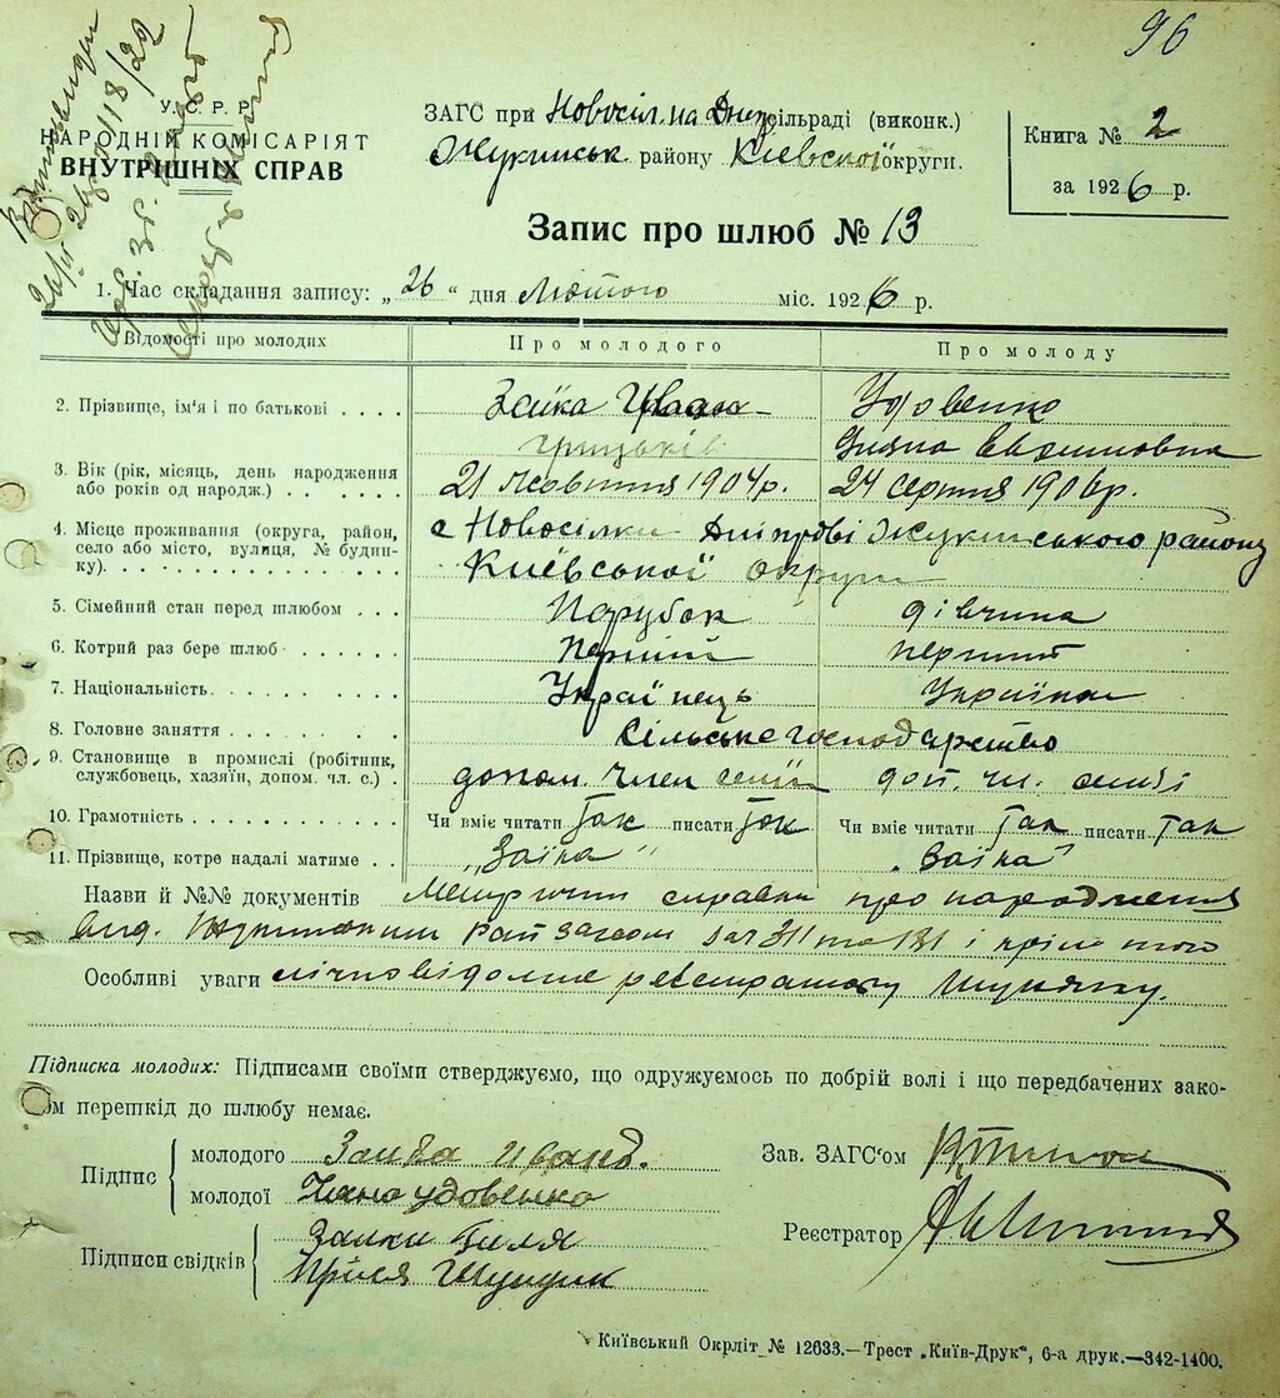 96
У. С. Р. Р.
НАРОДНІЙ КОМІСАРІЯТ
ВНУТРІШНІХ СПРАВ
ЗАГС при Новосіл. на Дніп сільраді (виконк.)
Жукинськ. району Київської округи.
Книга № 2
за 1926 р.
Запис про шлюб № 13
1. Час складання запису: „ 26 “ дня Лютого міс. 1926 р.
Відомості про молодих
Про молодого
Про молоду
2. Прізвище, ім'я і по батькові . . . .
Заїка Іван
Удовенко
Грицьків
3. Вік (рік, місяць, день народження
або років од народж.) . . . . . .
21 жовтня 1904 р.
24 серпня 1906 р.
4. Місце проживання (округа, район,
село або місто, вулиця, № будин-
ку). . . . . . . . . . . . . .
с Новосілки Дніпрові Жукинського району
Київської округи
5. Сімейний стан перед шлюбом . . .
Парубок
дівчина
6. Котрий раз бере шлюб . . . . . .
Перший
перший
7. Національність. . . . . . . . . .
Українець
Українка
8. Головне заняття . . . . . . . . .
Сільське господарство
9. Становище в промислі (робітник,
службовець, хазяїн, допом. чл. с.) .
допом. член семїї
доп. чл. семїі
10. Грамотність . . . . . . . . . . .
Чи вміє читати так писати так
Чи вміє читати так писати так
11. Прізвище, котре надалі матиме . .
„Заїка“
„Заїка“
Назви й №№ документів Метричні справки про народження
вид. Жукинським Рай загсом за 311 та 131 і крім того
Особливі уваги лічно відомие реєстратору
Підписка молодих: Підписами своїми стверджуємо, що одружуємось по добрій волі і що передбачених зако-
ом перешкід до шлюбу немає.
Підпис
молодого Заика Иванъ.
молодої Удовенко
Підписи свідків
Заики
Прися
Зав. ЗАГС'ом
Реєстратор
Київський Окрліт № 12633.—Трест „Київ-Друк“, 6-а друк.—342-1400.